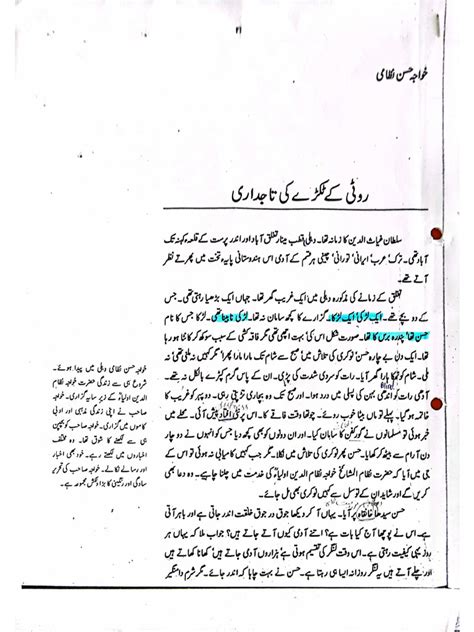 ۲۱
خواجہ حسن نظامی
روٹی کے ٹکڑے کی تاجداری
سلطان غیاث الدین کا زمانہ تھا۔ دہلی قطب مینار تغلق آباد اور اندر پرست کے قلعہ کہنہ تک
آباد تھی۔ ترک' عرب' ایرانی' تورانی' چینی ہر قسم کے آدمی اس ہندوستانی پایہ تخت میں پھرتے نظر
آتے تھے۔
تغلق کے زمانے کی مذکورہ دہلی میں ایک غریب گھر تھا۔ جہاں ایک بڑھیا رہتی تھی۔ جس
کے دو بچے تھے۔ ایک لڑکی' ایک لڑکا۔ گزارے کا کچھ سامان نہ تھا۔ لڑکی نابینا تھی۔ لڑکا جس کا نام
حسن تھا' پندرہ برس کا تھا۔ صورت شکل اس کی بہت اچھی تھی مگر فاقہ کشی کے سبب سوکھ کر کانٹا ہو رہا
تھا۔ ایک دن بے چارہ حسن نوکری کی تلاش میں صبح سے شام تک مارا مارا پھرا۔ نوکری نہ ملنی تھی نہ ملی۔
شام کو تھکا ہارا گھر آیا۔ رات کو سردی شدت کی پڑی۔ ان کے پاس گرم کپڑے نہ تھے۔
آدھی رات کو حسن کی ماں کو بخار ہو گیا۔ دو ہفتے تک وہ بیماری تڑپتی رہی۔ اور
خاتمہ ہو گیا۔ پہلے تو ماں بیٹا خوب روئے۔ چوتھا وقت فاقے کا۔ اس پر آئی۔ محلے میں
خبر ہوئی تو مسلمانوں نے گور کفن کا سامان کیا۔ اور دفن کر آئے۔ اس دن حسن کو انہوں نے دو چار
دن آرام سے بیٹھ کر کھایا۔ پھر حسن نوکری کی تلاش میں نکلا۔ مگر کہیں کچھ نہ ملا۔ آخر اس کے
جی میں آیا کہ حضرت نظام المشائخ خواجہ نظام الدین اولیاءؒ کی خدمت میں چلنا چاہیے۔
اور شاید ان کے توسل سے کہیں نوکری بھی مل جائے۔
حسن سیدھا خانقاہ پر آیا۔ یہاں آ کر دیکھا جوق در جوق خلقت اندر جاتی ہے اور باہر آتی
ہے۔ اس نے پوچھا آج کیا بات ہے؟ اتنے آدمی کیوں آتے جاتے ہیں؟ جواب ملا کہ یہاں ہر
روز یہی کیفیت رہتی ہے۔ اس وقت لنگر کی تقسیم ہوتی ہے' ہزاروں آدمی جاتے ہیں' کھانا کھاتے ہیں
اور چلے آتے ہیں یہ لنگر روزانہ ایسا ہی رہتا ہے۔ حسن نے بہت چاہا کہ اندر جائے۔ مگر شرم دامنگیر
خواجہ حسن نظامی دہلی میں پیدا ہوئے۔
شروع ہی سے زندگی حضرت خواجہ نظام
الدین اولیاءؒ کے زیر سایہ گزاری۔ خواجہ
صاحب نے اپنی زندگی مذہبی اور ادبی
کاموں میں گزاری۔ خواجہ صاحب کو بچپن
ہی سے لکھنے کا شوق تھا۔ وہ مختلف
اخباروں میں لکھتے رہے۔ خود بھی اخبار
اور رسالے نکالے۔ خواجہ صاحب کی تحریر
سادگی اور رنگینی کا بڑا حسین مجموعہ ہے۔